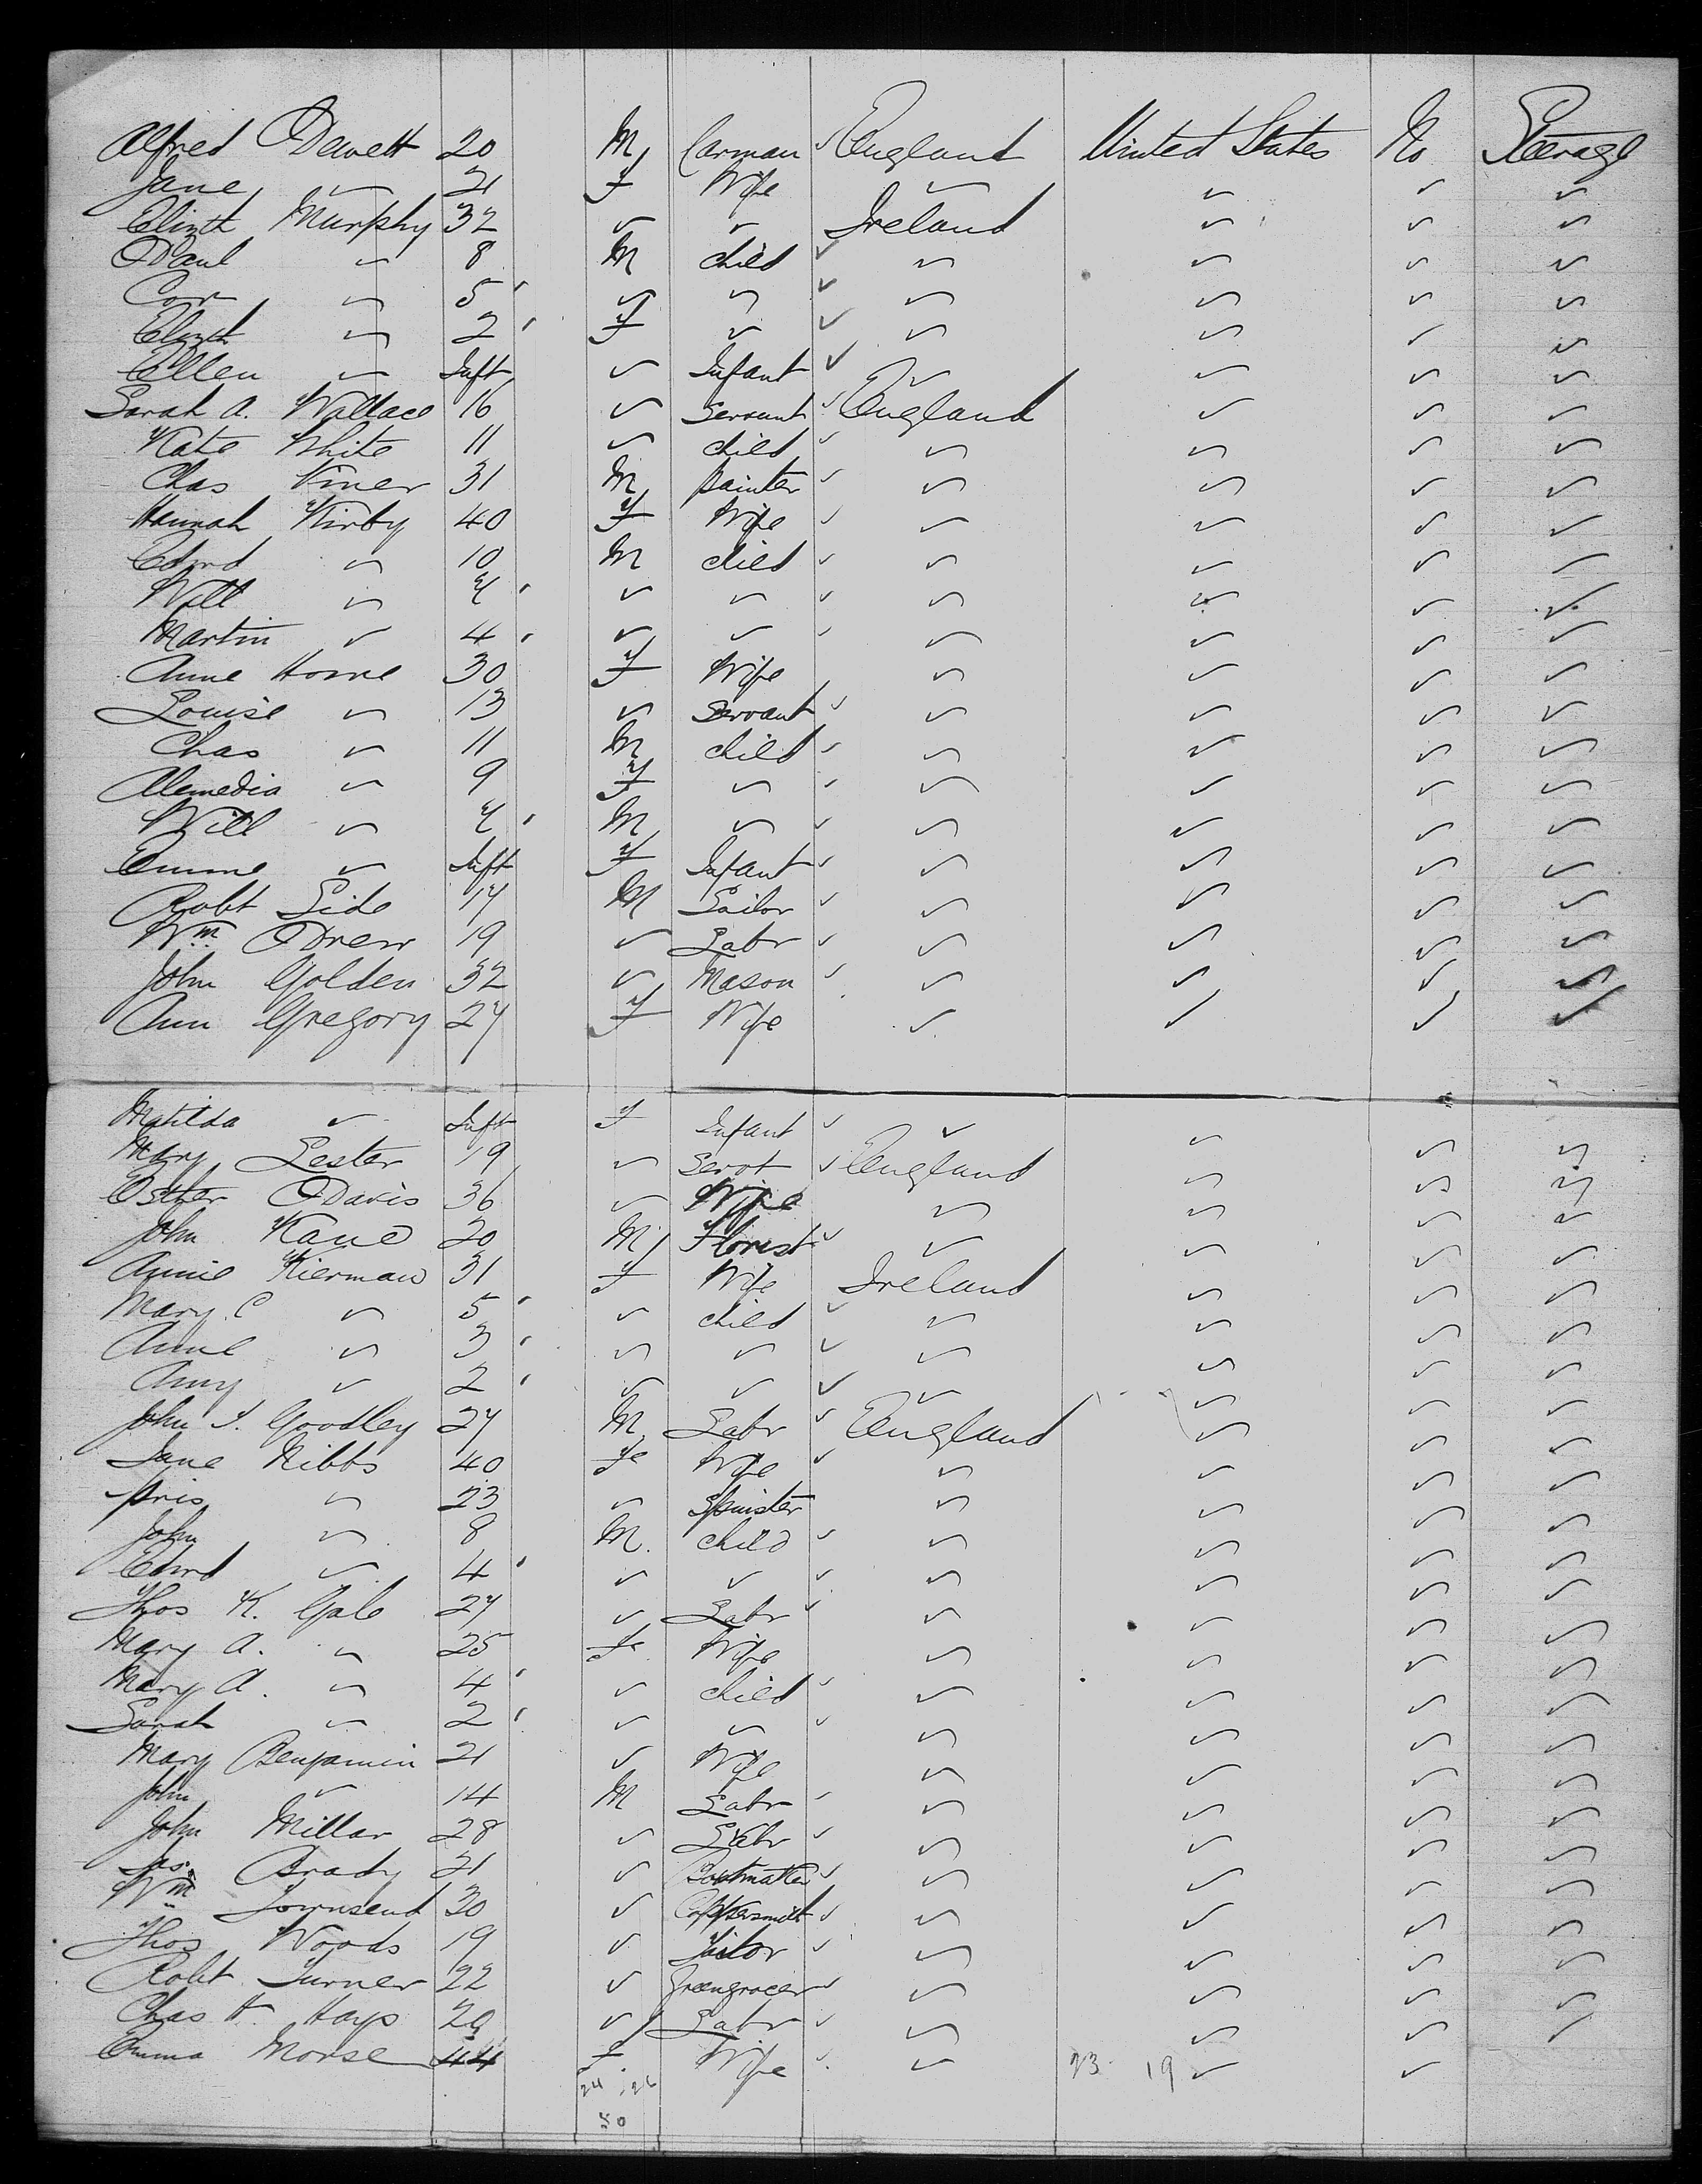 Alfred Dewett 20 M Carman ✓ England United States No Steerage
Jane ✓ 21 F Wife ✓ ✓ ✓ ✓
Elizth Murphy 32 ✓ ✓ Ireland ✓ ✓ ✓
Paul ✓ 8 M child ✓ ✓ ✓ ✓ ✓
Cor ✓ 5 ✓ ✓ ✓ ✓ ✓ ✓ ✓
Elizth ✓ 2 F ✓ ✓ ✓ ✓ ✓ ✓
Ellen ✓ Inft ✓ Infant ✓ ✓ ✓ ✓ ✓
Sarah A. Wallace 16 ✓ Servant ✓ England ✓ ✓ ✓
Kate White 11 ✓ child ✓ ✓ ✓ ✓ ✓
Chas Viner 31 M painter ✓ ✓ ✓ ✓ ✓
Hannah Kirby 40 F Wife ✓ ✓ ✓ ✓ ✓
Edwd ✓ 10 M child ✓ ✓ ✓ ✓ ✓
Will ✓ 7 ✓ ✓ ✓ ✓ ✓ ✓ ✓
Martin ✓ 4 ✓ ✓ ✓ ✓ ✓ ✓ ✓
Anne Horne 30 F Wife ✓ ✓ ✓ ✓
Louise ✓ 13 ✓ Servant ✓ ✓ ✓ ✓ ✓
Chas ✓ 11 M child ✓ ✓ ✓ ✓ ✓
Alemedia ✓ 9 F ✓ ✓ ✓ ✓ ✓ ✓
Will ✓ 7 M ✓ ✓ ✓ ✓ ✓ ✓
Emma ✓ Inft F Infant ✓ ✓ ✓ ✓ ✓
Robt Side 17 M Sailor ✓ ✓ ✓ ✓ ✓
Wm Drew 19 ✓ Labr ✓ ✓ ✓ ✓ ✓
John Golden 32 ✓ Mason ✓ ✓ ✓ ✓ ✓
Ann Gregory 27 F Wife ✓ ✓ ✓ ✓
Matilda ✓ Inft F Infant ✓ ✓
Mary Lester 19 ✓ Servt ✓ England ✓ ✓ ✓
Esther Davis 36 ✓ Wife ✓ ✓ ✓ ✓
John Kane 20 M Florist ✓ ✓ ✓ ✓ ✓
Annie Kiernan 31 F Wife Ireland ✓ ✓ ✓
Mary C ✓ 5 ✓ child ✓ ✓ ✓ ✓ ✓
Anne ✓ 3 ✓ ✓ ✓ ✓ ✓ ✓ ✓
Amy ✓ 2 ✓ ✓ ✓ ✓ ✓ ✓ ✓
John J. Goodley 27 M Labr ✓ England ✓ ✓ ✓
Jane Nibbs 40 Fe Wife ✓ ✓ ✓ ✓ ✓
Pris ✓ 23 ✓ Spinster ✓ ✓ ✓ ✓
John ✓ 8 M. child ✓ ✓ ✓ ✓ ✓
Edwd ✓ 4 ✓ ✓ ✓ ✓ ✓ ✓ ✓
Thos K. Gale 27 ✓ Labr ✓ ✓ ✓ ✓ ✓
Mary A. ✓ 25 Fe Wife ✓ ✓ ✓ ✓
Mary A. ✓ 4 ✓ child ✓ ✓ ✓ ✓ ✓
Sarah ✓ 2 ✓ ✓ ✓ ✓ ✓ ✓ ✓
Mary Benjamin 21 ✓ Wife ✓ ✓ ✓ ✓
John ✓ 14 M Labr ✓ ✓ ✓ ✓ ✓
John Millar 28 ✓ Labr ✓ ✓ ✓ ✓ ✓
Jas. Brady 21 ✓ ✓ ✓ ✓ ✓ ✓
Wm Townsend 30 ✓ Coppersmith ✓ ✓ ✓ ✓ ✓
Thos Woods 19 ✓ Tailor ✓ ✓ ✓ ✓ ✓
Robt Turner 22 ✓ Greengrocer ✓ ✓ ✓ ✓ ✓
Chas H. Hays 29 ✓ Labr ✓ ✓ ✓ ✓ ✓
Emma Morse 44 F. Wife ✓ ✓ 23 19 ✓ ✓
24 26
50